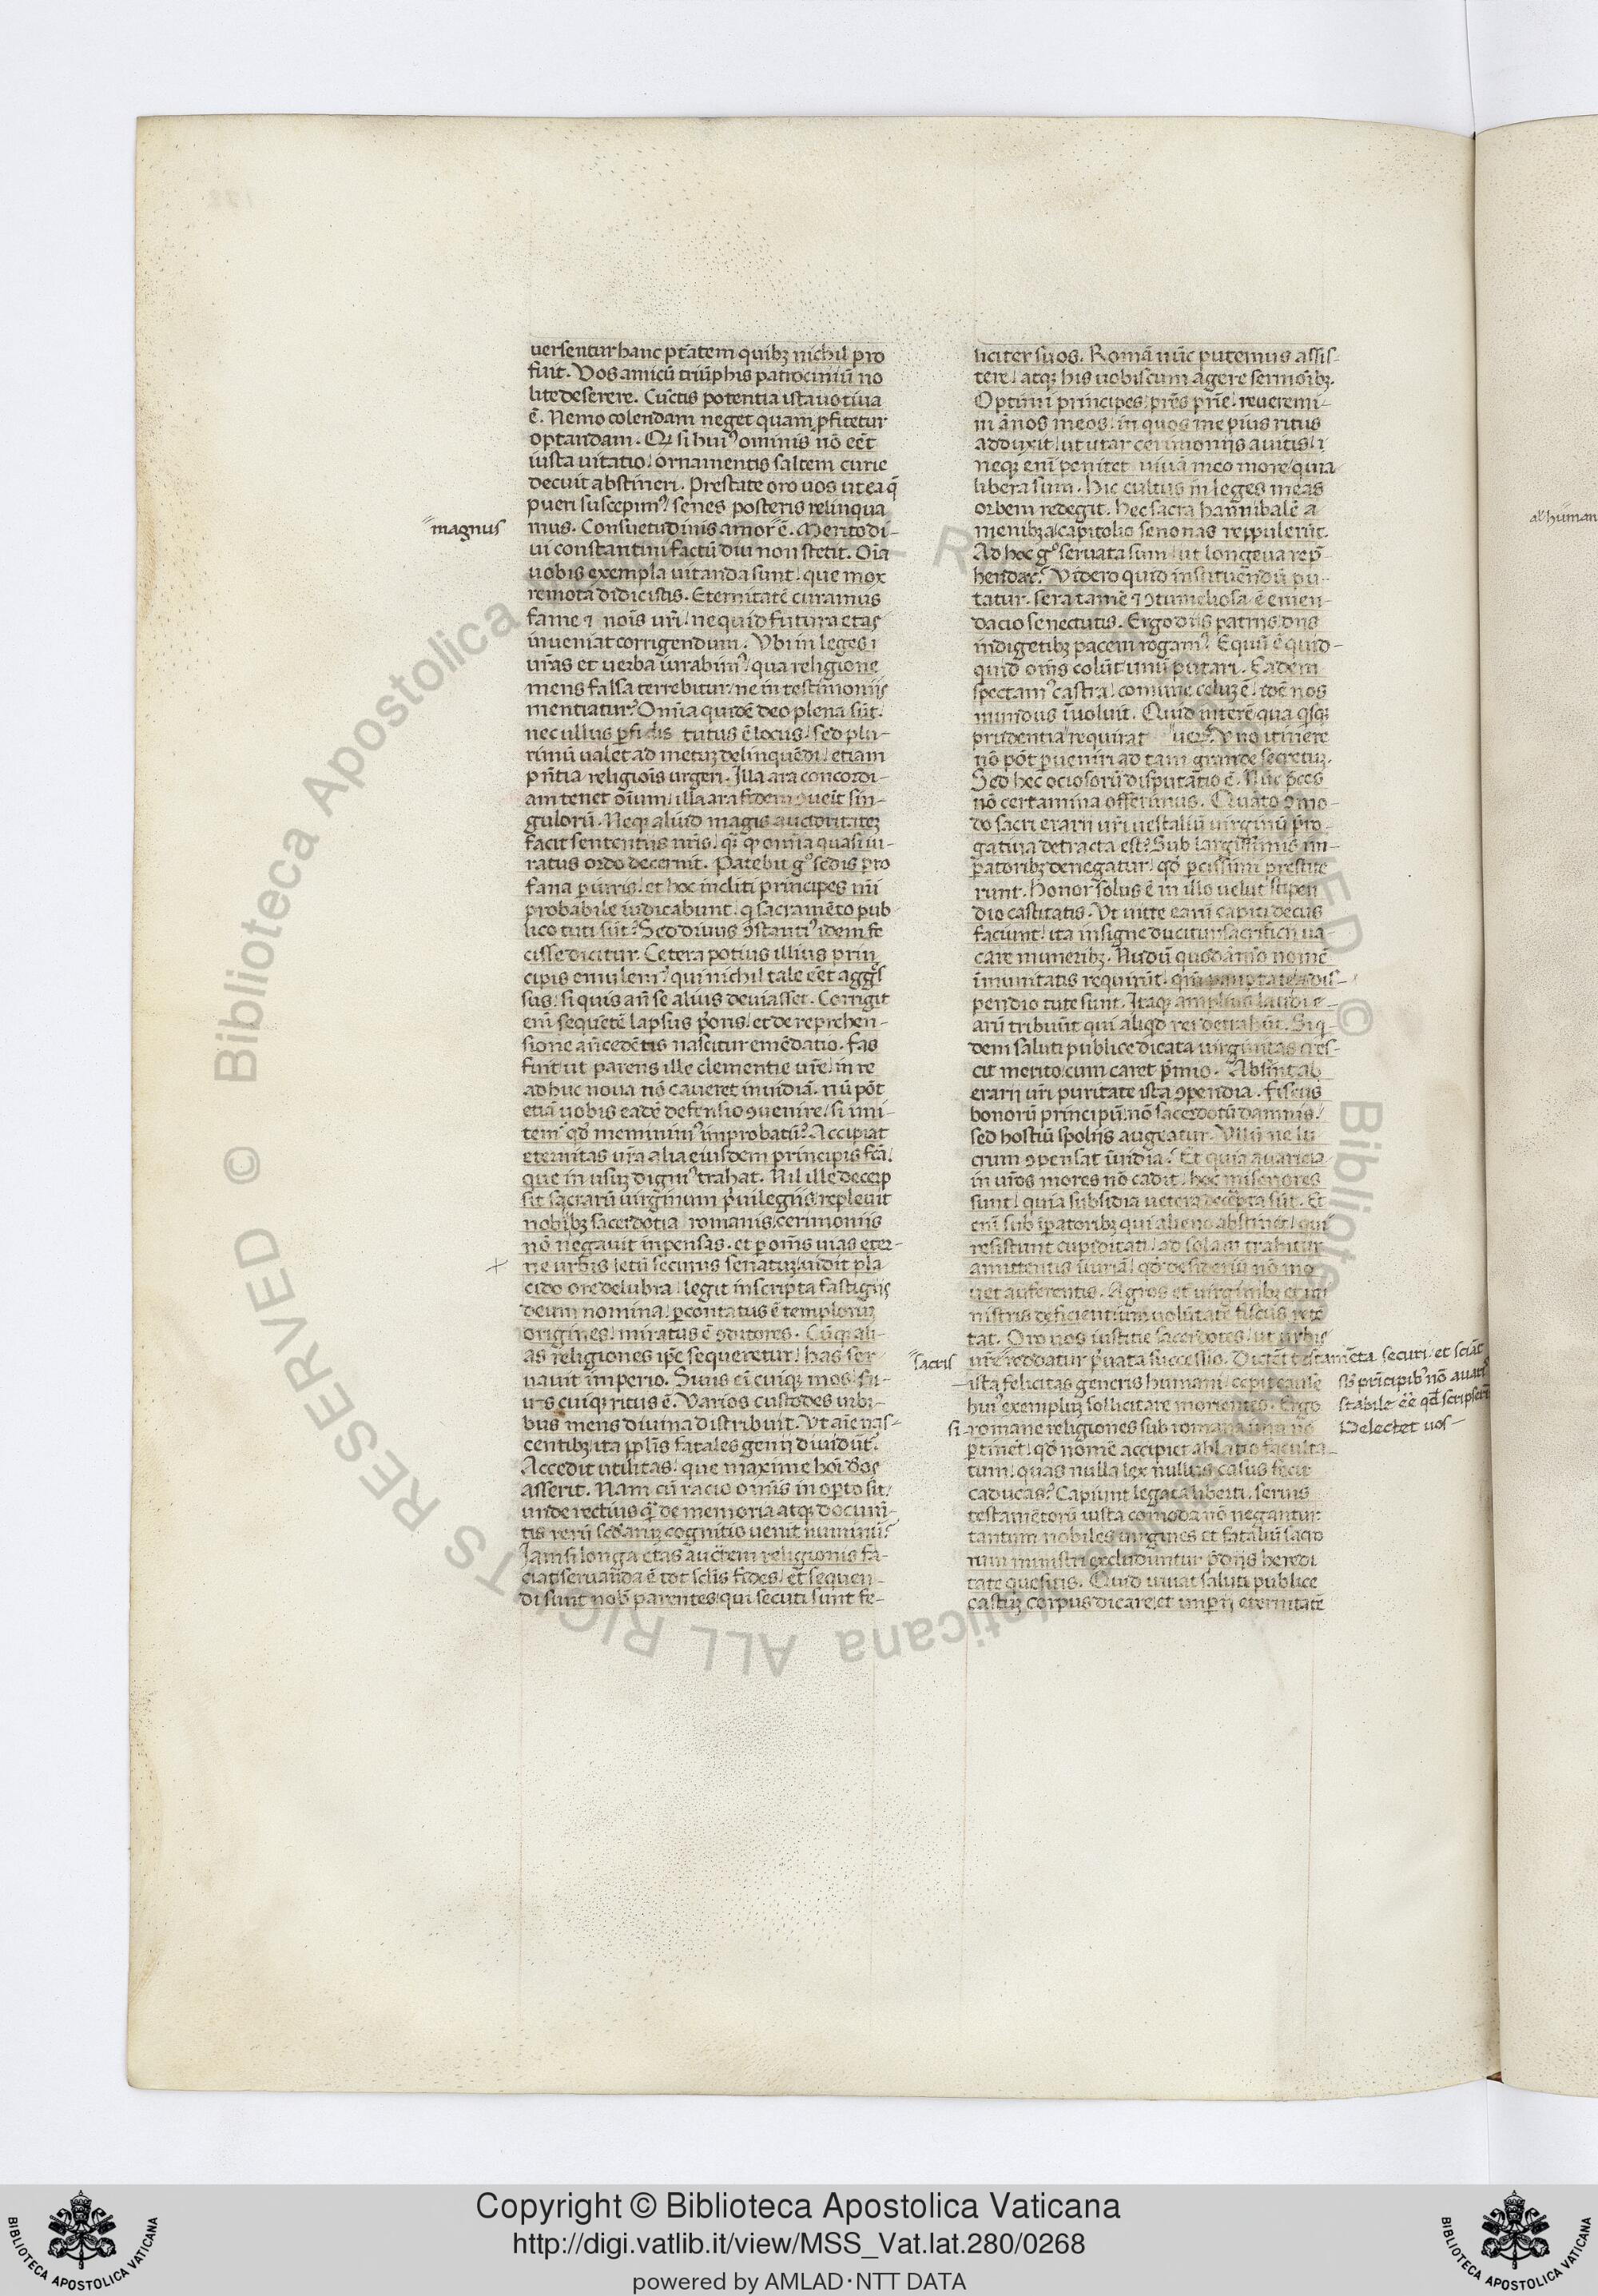 uersentur hanc ptātem quibꝫ nichil pro
fuit. Vos amicū triūphis patrociniū no
lite deserere. Cūctis potentia ista uotiua
ē. Nemo colendam neget quam ꝓfitetur
optandam. Qꝛ si huiꝰ ominis nō eēt
iusta uitatio/ ornamentis saltem curie
decuit abstineri. Prestate oro uos ut ea q̄
pueri suscepimꝰ/ senes posteris relinqua
magnus
mus. Consuetudinis amor ē. Merito di-
ui constantini factū diu non stetit. Oīa
uobis exempla uitanda sunt/ que mox
remota didicistis. Eternitatē curamus
fame ⁊ noīs urī/ ne quid futura etas
inueniat corrigendum. Vbi in leges
uras et uerba iurabimꝰ/ qua religione
mens falsa terrebitur/ ne in testimoniis
mentiatur? Omīa quidē deo plena sūt.
nec ullus ꝑfidis tutus ē locus/ sed plu-
rimū ualet ad metuꝫ delinquēdi/ etiam
pn̄tia religioīs urgeri. Illa ara concordi-
am tenet oīum/ illa ara fidem ꝯueīt sin-
gulorū. Neqꝫ aliud magis auctoritateꝫ
facit sententiis nrīs/ qꝫ ꝙ omīa quasi iu-
ratus ordo decernit. Patebit gͦ sedis pro
fana ꝑiuris/ et hoc incliti principes mī
probabile iudicabunt/ q sacramēto pub
lico tuti sūt? Sed diuus ꝯstantiꝰ idem fe
cisse dicitur. Cetera potius illius prin
cipis emulemꝰ/ qui nichil tale eēt aggs̄
sus/ si quis an̄ se alius deuiasset. Corrigit
enī sequētē lapsus pͥoris/ et de reprehen-
sione an̄cedētis nascitur emēdatio. Fas
fuit ut parens ille clementie urē/ in re
adhuc noua nō caueret inuidiā. nū pōt
etiā uobis eadē defensio ꝯuenire/ si imi-
temꝰ qd̄ meminimꝰ improbatū? Accipiat
eternitas urā alia eiusdem principis fcā/
que in usuꝫ digniꝰ trahat. Nil ille decerp
sit sacrarū uirginum pͥuilegiis/ repleuit
nobilibꝫ sacerdotia/ romanis cerimoniis
nō negauit inpensas. et ꝑ om̄s uias eter-
ne urbis/ letū secutus senatuꝫ/ uidit pla
cido ore delubra/ legit inscripta fastigiis
deum nomina/ ꝑcontatus ē temploruꝫ
origines/ miratus ē ꝯditores. Cūqꝫ ali-
as religiones ip̄e sequeretur/ has ser-
uauit imperio. Suus eī cuiqꝫ mos/ su-
us cuiqꝫ ritus ē. Varios custodes urbi-
bus mens diuina distribuit. Vt aīe nas-
centibꝫ/ ita ppl̄is fatales genii diuidūt.
Accedit utilitas/ que maxime hoī deos
asserit. Nam cū racio omīs in opto sit/
unde rectius qͣ de memoria atqꝫ documē-
tis rerū scdaꝝ cognitio uenit numinū?
Iam si longa etas auctem religionis fa-
ciat/ seruanda ē tot sclīs fides/ et sequen-
di sunt nob̄ parentes/ qui secuti sunt fe-
liciter suos. Romā nūc putemus assis-
tere/ atqꝫ his uobiscum agere sermoībꝫ.
Optimi principes/ prēs prīe/ reueremi-
ni ānos meos/ in quos me pius ritus
adduxit/ ut utar cerimoniis auitis/
neqꝫ enī penitet. uiuā meo more/ quia
libera sum. Hic cultus in leges meas
orbem redegit. Hec sacra hannibalē a
menibꝫ/ a capitolio senonas reppulerūt.
Ad hoc gͦ seruata sum/ ut longeua repͬ-
hendar? Videro quid instituendū pu-
tatur. sera tamē ⁊ ꝯtumeliosa ē emen-
dacio senectutis. Ergo diis patriis/ diis
indigetibꝫ pacem rogamꝰ. Equū ē quid-
quid om̄s colūt/ unū putari. Eadem
spectamꝰ castra/ comūne celuꝫ ē/ idē nos
mundus īuoluit. Quid interē qua qͥsqꝫ
prudentia requirat ueꝝ? Vno itinere
nō pōt ꝑueniri ad tam grande secretuꝫ.
Sed hec ociosorū disputātio ē. Nūc pͬces
nō certamina offerimus. Quāto ꝯmo-
do sacri erarii urī uestaliū uirginū pͬro-
gatiua detracta est? Sub largissimis im-
peratoribꝫ denegatur/ qd̄ ꝑcissimi prestite
runt. Honor solus ē in illo uelut stipen
dio castitatis. Vt uitte earū capiti decus
faciunt/ ita insigne ducitur sacrificii ua-
care muneribꝫ. Nudū quoddāmo nomē
īmunitatis requirūt. qm̄ paupertate a dis-
pendio tute sunt. Itaqꝫ amplius laudi e-
arū tribuūt qui aliqͥd rei detrahūt. Siqͥ
dem saluti publice dicata uirginitas cres-
cit merito/ cum caret pͬmio. Absint ab
erarii urī puritate ista ꝯpendia. Fiscus
bonorū principū/ nō sacerdotū damnis/
sed hostiū spoliis augeatur. Vllū ne lu
crum ꝯpensat īuidia? Et quia auaricia
in urōs mores nō cadit/ hoc miseriores
sunt/ quia subsidia uetera decerpta sūt. Et
enī sub īꝑatoribꝫ qui alieno abstinēt/ qui
resistunt cupiditati/ ad solam trahitur
amittentis iniuriā/ qd̄ desideriū nō mo
uet auferentis. Agros et uirginibꝫ et mi
nistris deficientium uolūtate fiscus rete
tat. Oro uos iustitie sacerdotes/ ut urbis
sacris
urē reddatur pͥuata successio. Dictēt testamēta securi/ et sciāt
ista felicitas generis humani/ cepit cause sb̄ prīcipibꝰ nō auaris
huiꝰ exempluꝫ sollicitare morientes. Ergo stabile eē qd̄ scripserīt
si romane religiones sub romana iura nō Delectet uos
ꝑtinēt/ qd̄ nomē accipiet ablatio faculta-
tum/ quas nulla lex nullus casus fecit
caducas? Capiunt legata liberti. seruis
testamētorū iusta comoda nō negantur.
tantum nobiles uirgines et fataliū sacro
rum ministri excluduntur pͬdiis heredi
tate quesitis. Quid iuuat saluti publice
castuꝫ corpus dicare/ et imꝑii eternitatē
al' human
Copyright © Biblioteca Apostolica Vaticana
http://digi.vatlib.it/view/MSS_Vat.lat.280/0268
powered by AMLAD·NTT DATA
© Biblioteca Apostolica Vaticana ALL RIGHTS RESERVED
BIBLIOTECA APOSTOLICA VATICANA
BIBLIOTECA APOSTOLICA VATICANA